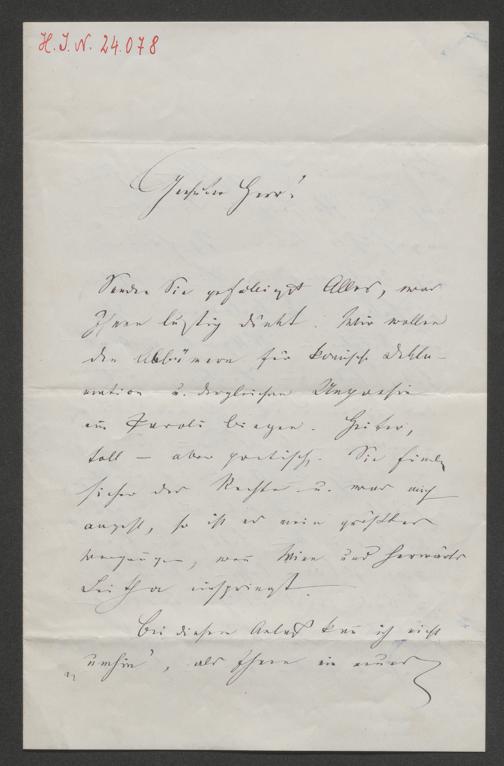 H. I. N. 24.078
Geehrter Herr!
Senden Sie gefälligst Alles, was
Ihnen lustig dünkt. Wir wollen
den Albümern für komische Dekla-
mation u. dergleichen Unpoesie
ein Paroli biegen. Heiter,
toll – aber poetisch. Sie finden
sicher das Rechte u. was mich
angeht, so ist es mein größtes
Vergnügen, wenn Wien und herwärts
Leitha einspringt.
Bei diesem Anlaß kann ich nicht
umhin, als Ihnen ein neues